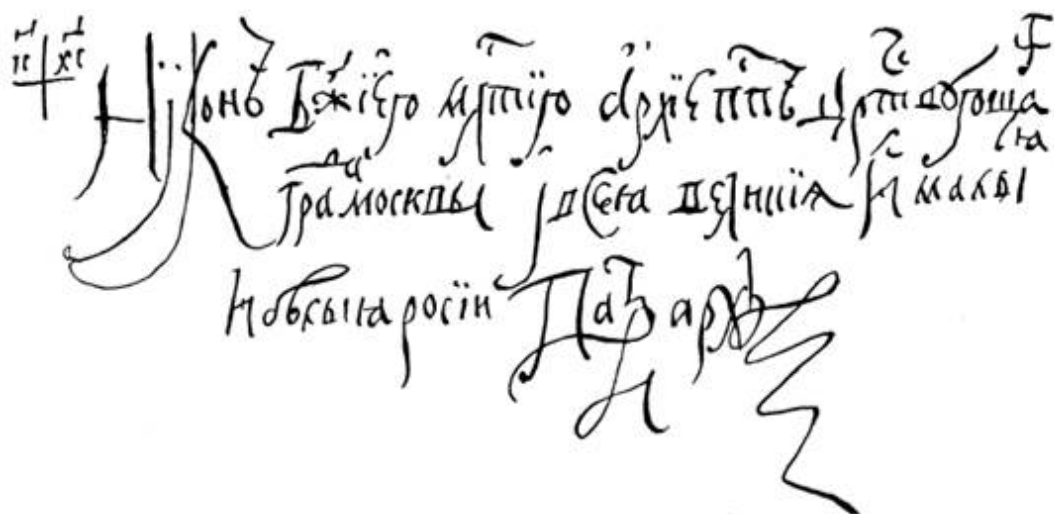 Нїконъ Бжїею мл҃тїю архїеп҃пъ црⷭ҇твѹюща
гра москвы і всеꙗ великиѧ и малыꙗ
и бѣлыꙗ росїи Патриархъ